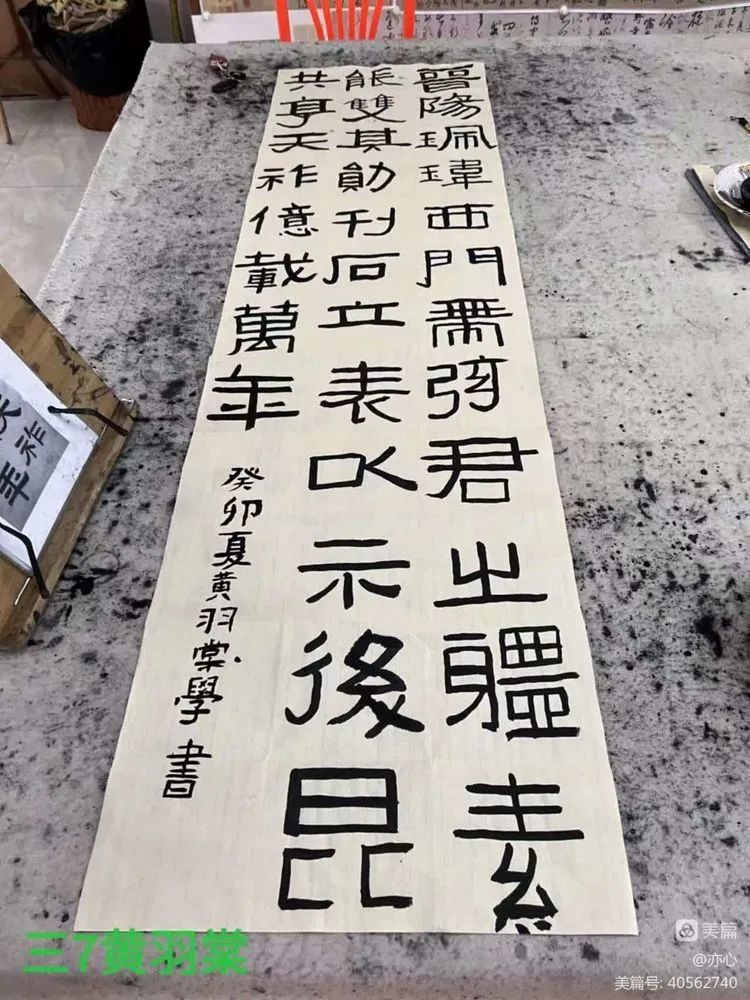 晉陽珮瑋西門帶弦君之軆素
能雙其勛刊石立表以示後昆
共享天祚億載萬年
癸卯夏黄羽棠學書
天祚
年
三7黄羽棠
美篇
@亦心
美篇号: 40562740